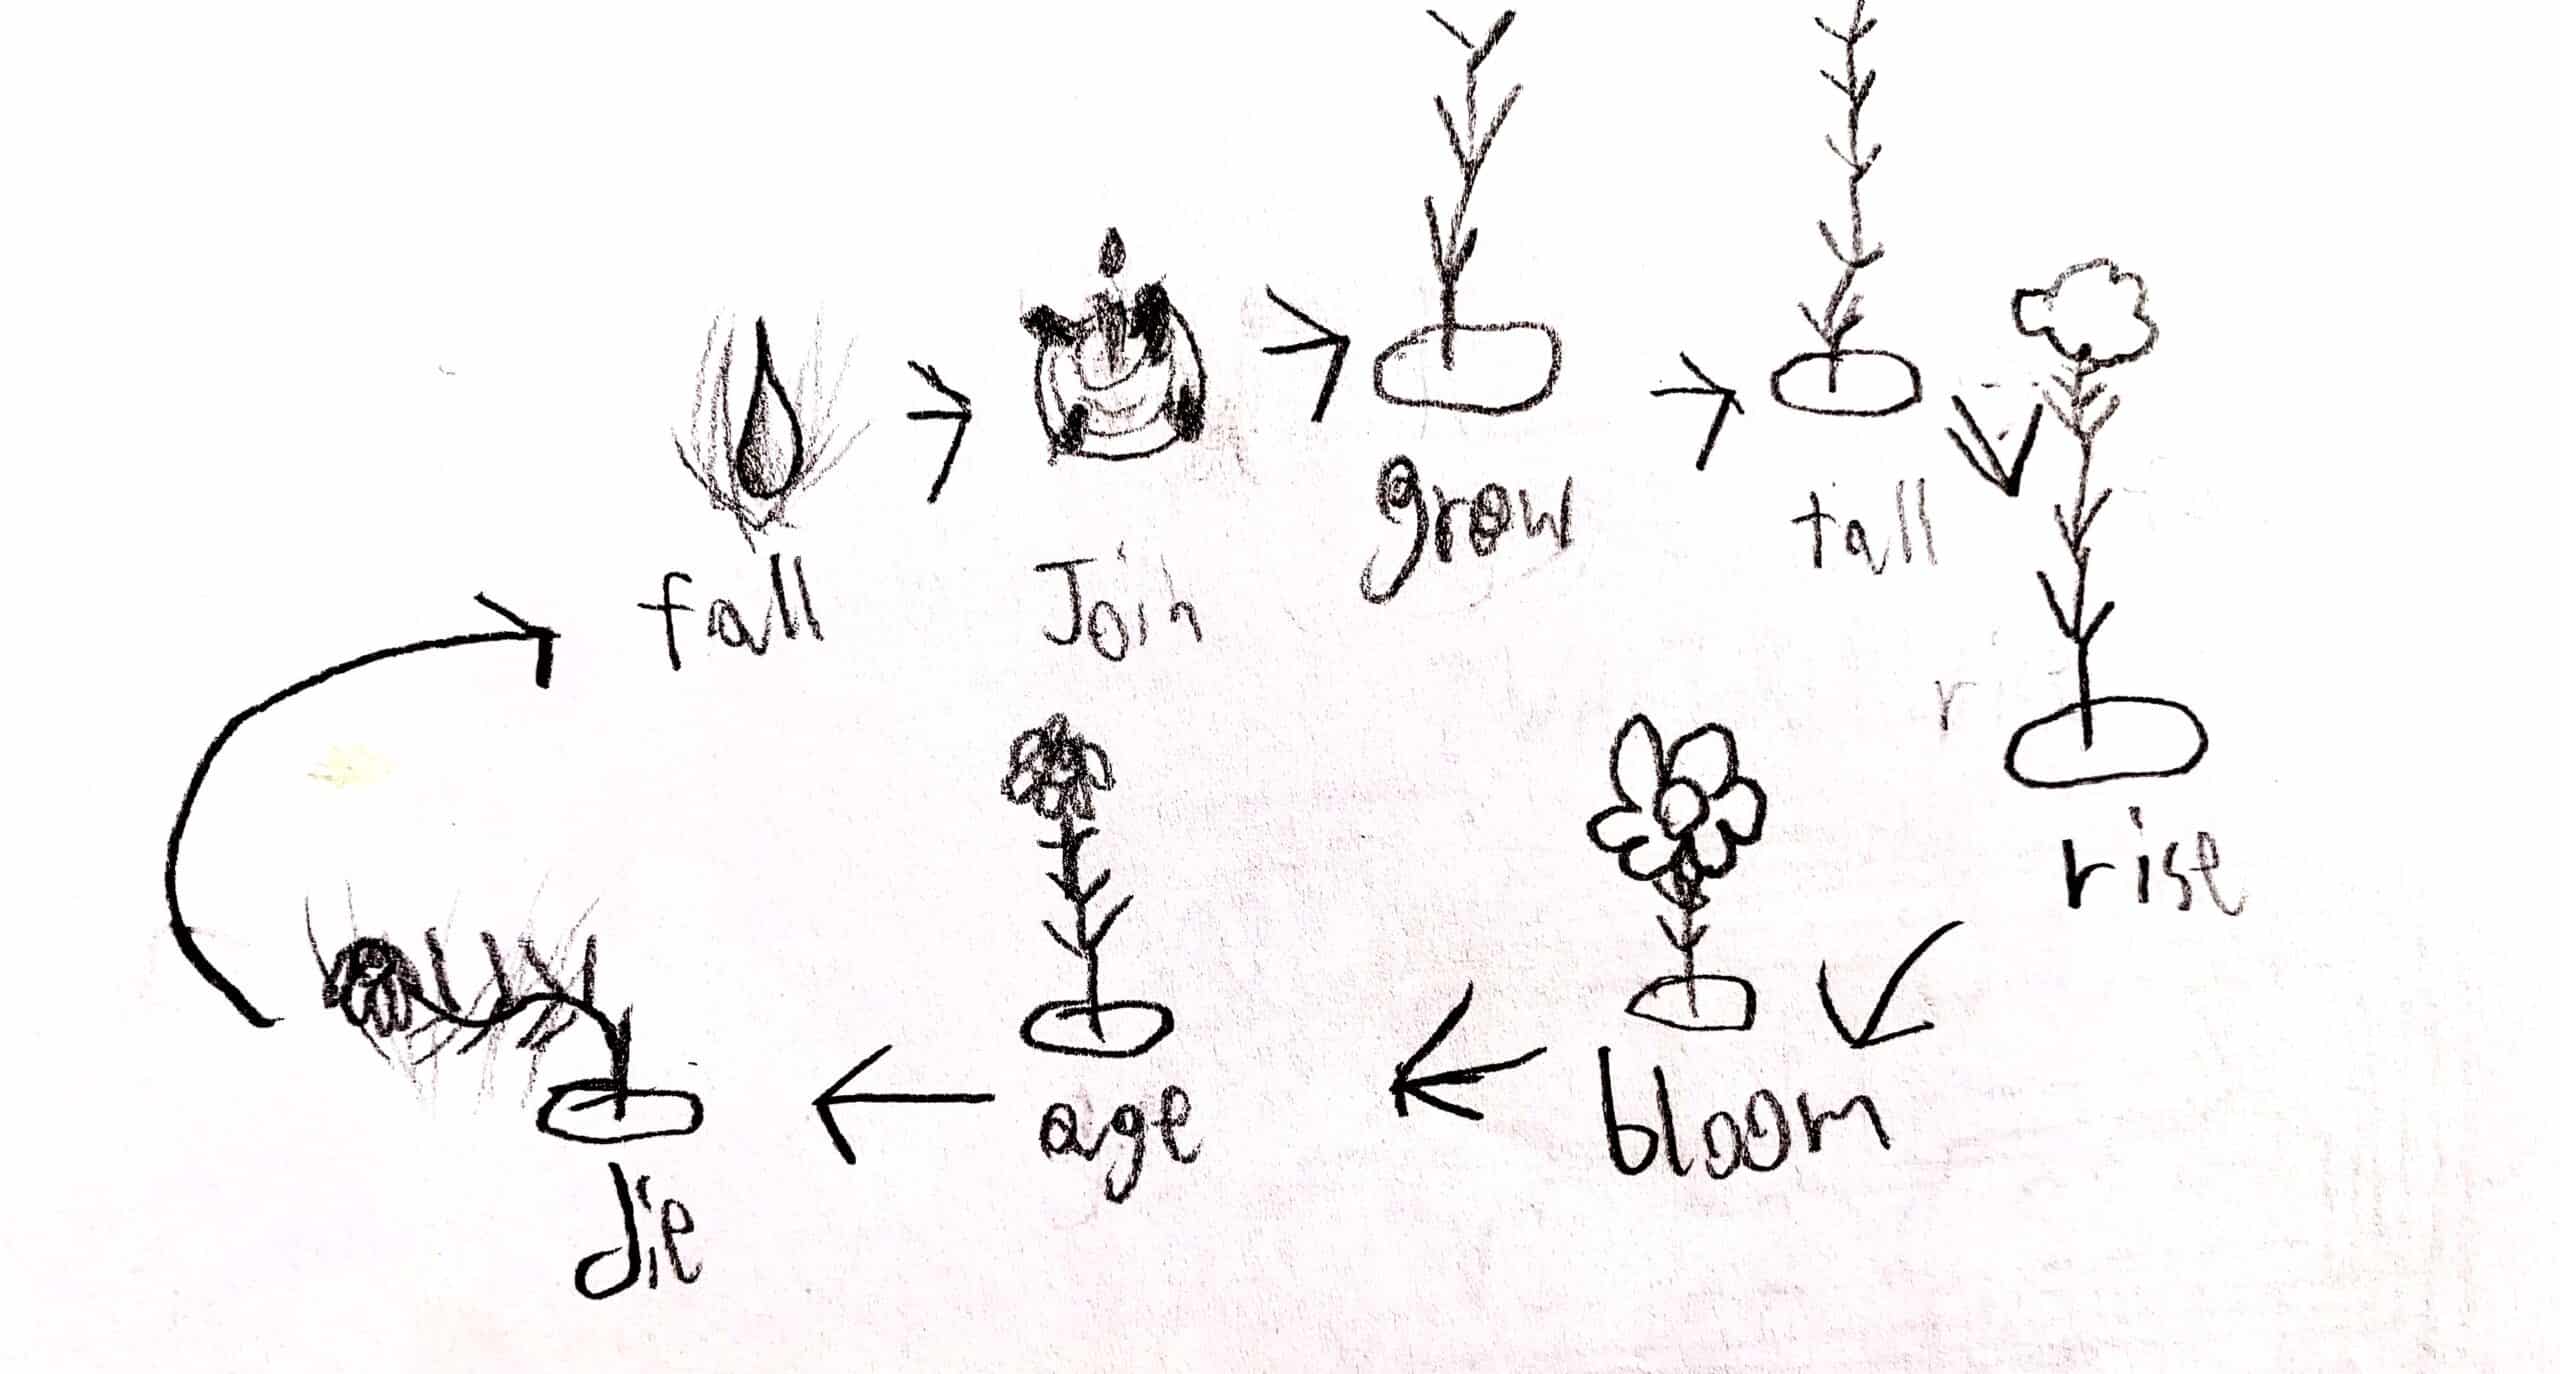 fall
Join
grow
tall
r
rise
bloom
age
die